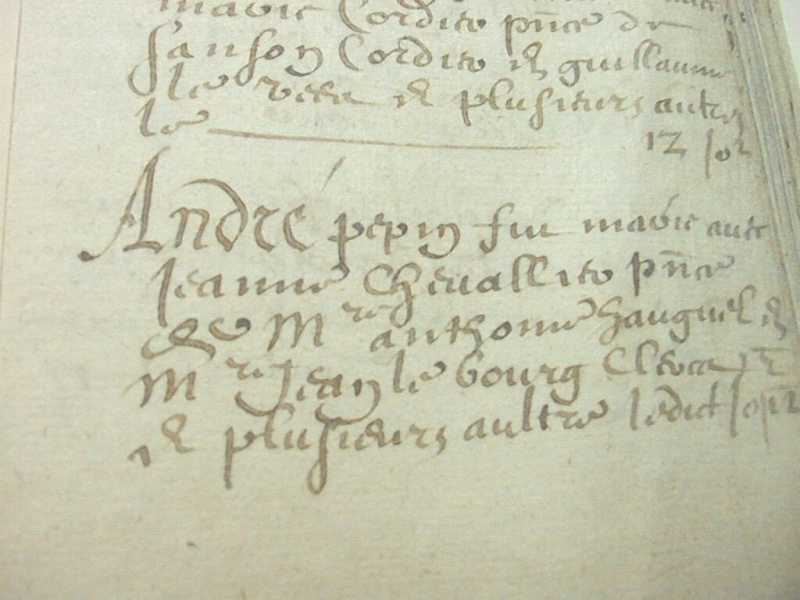 marie Cordier pnce de
sanson Cordier et guillaume
le et plusieurs autres
le 12 jor
André pepin fut marie avec
Jeanne Chevallier pnce
de Mre anthoine hauguel et
Mre Jean le bourg Clerc
et plusieurs aultre ledict jor